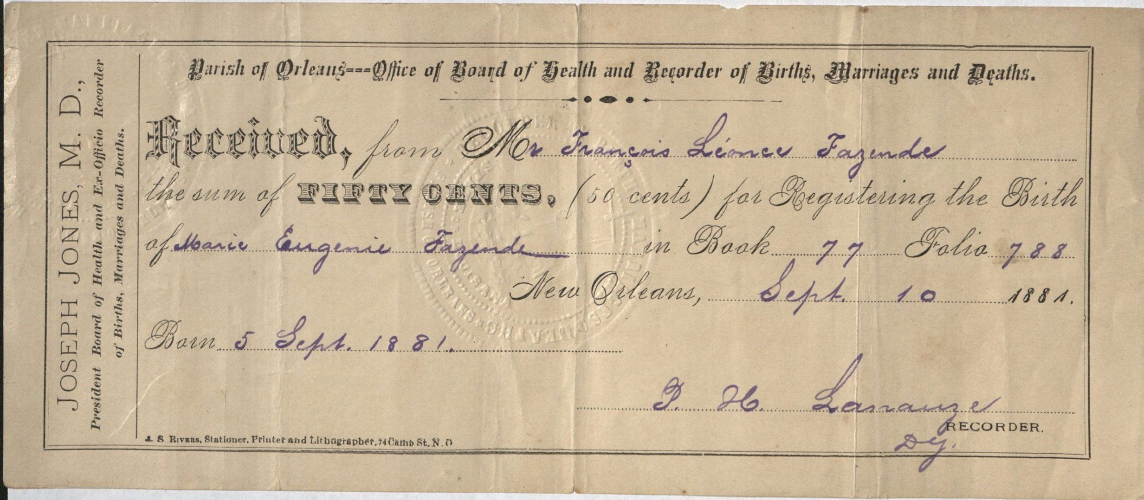 JOSEPH JONES, M. D.,
President Board of Health and Ex-Officio Recorder
of Births, Marriages and Deaths.
Parish of Orleans---Office of Board of Health and Recorder of Births, Marriages and Deaths.
Received, from Mr François Léonce Fazende
the sum of FIFTY CENTS, (50 cents) for Registering the Birth
of Marie Eugenie Fazende in Book 77 Folio 788
New Orleans, Sept. 10 1881.
Born 5 Sept. 1881.
P. H. Lanauze
RECORDER.
Dy.
J. S. RIVERS, Stationer, Printer and Lithographer, 74 Camp St. N. O